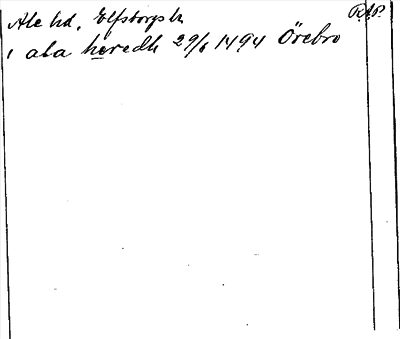 Ale hd, Elfsborgs ln
RAP.
i ala heredh 29/6 1494 Örebro